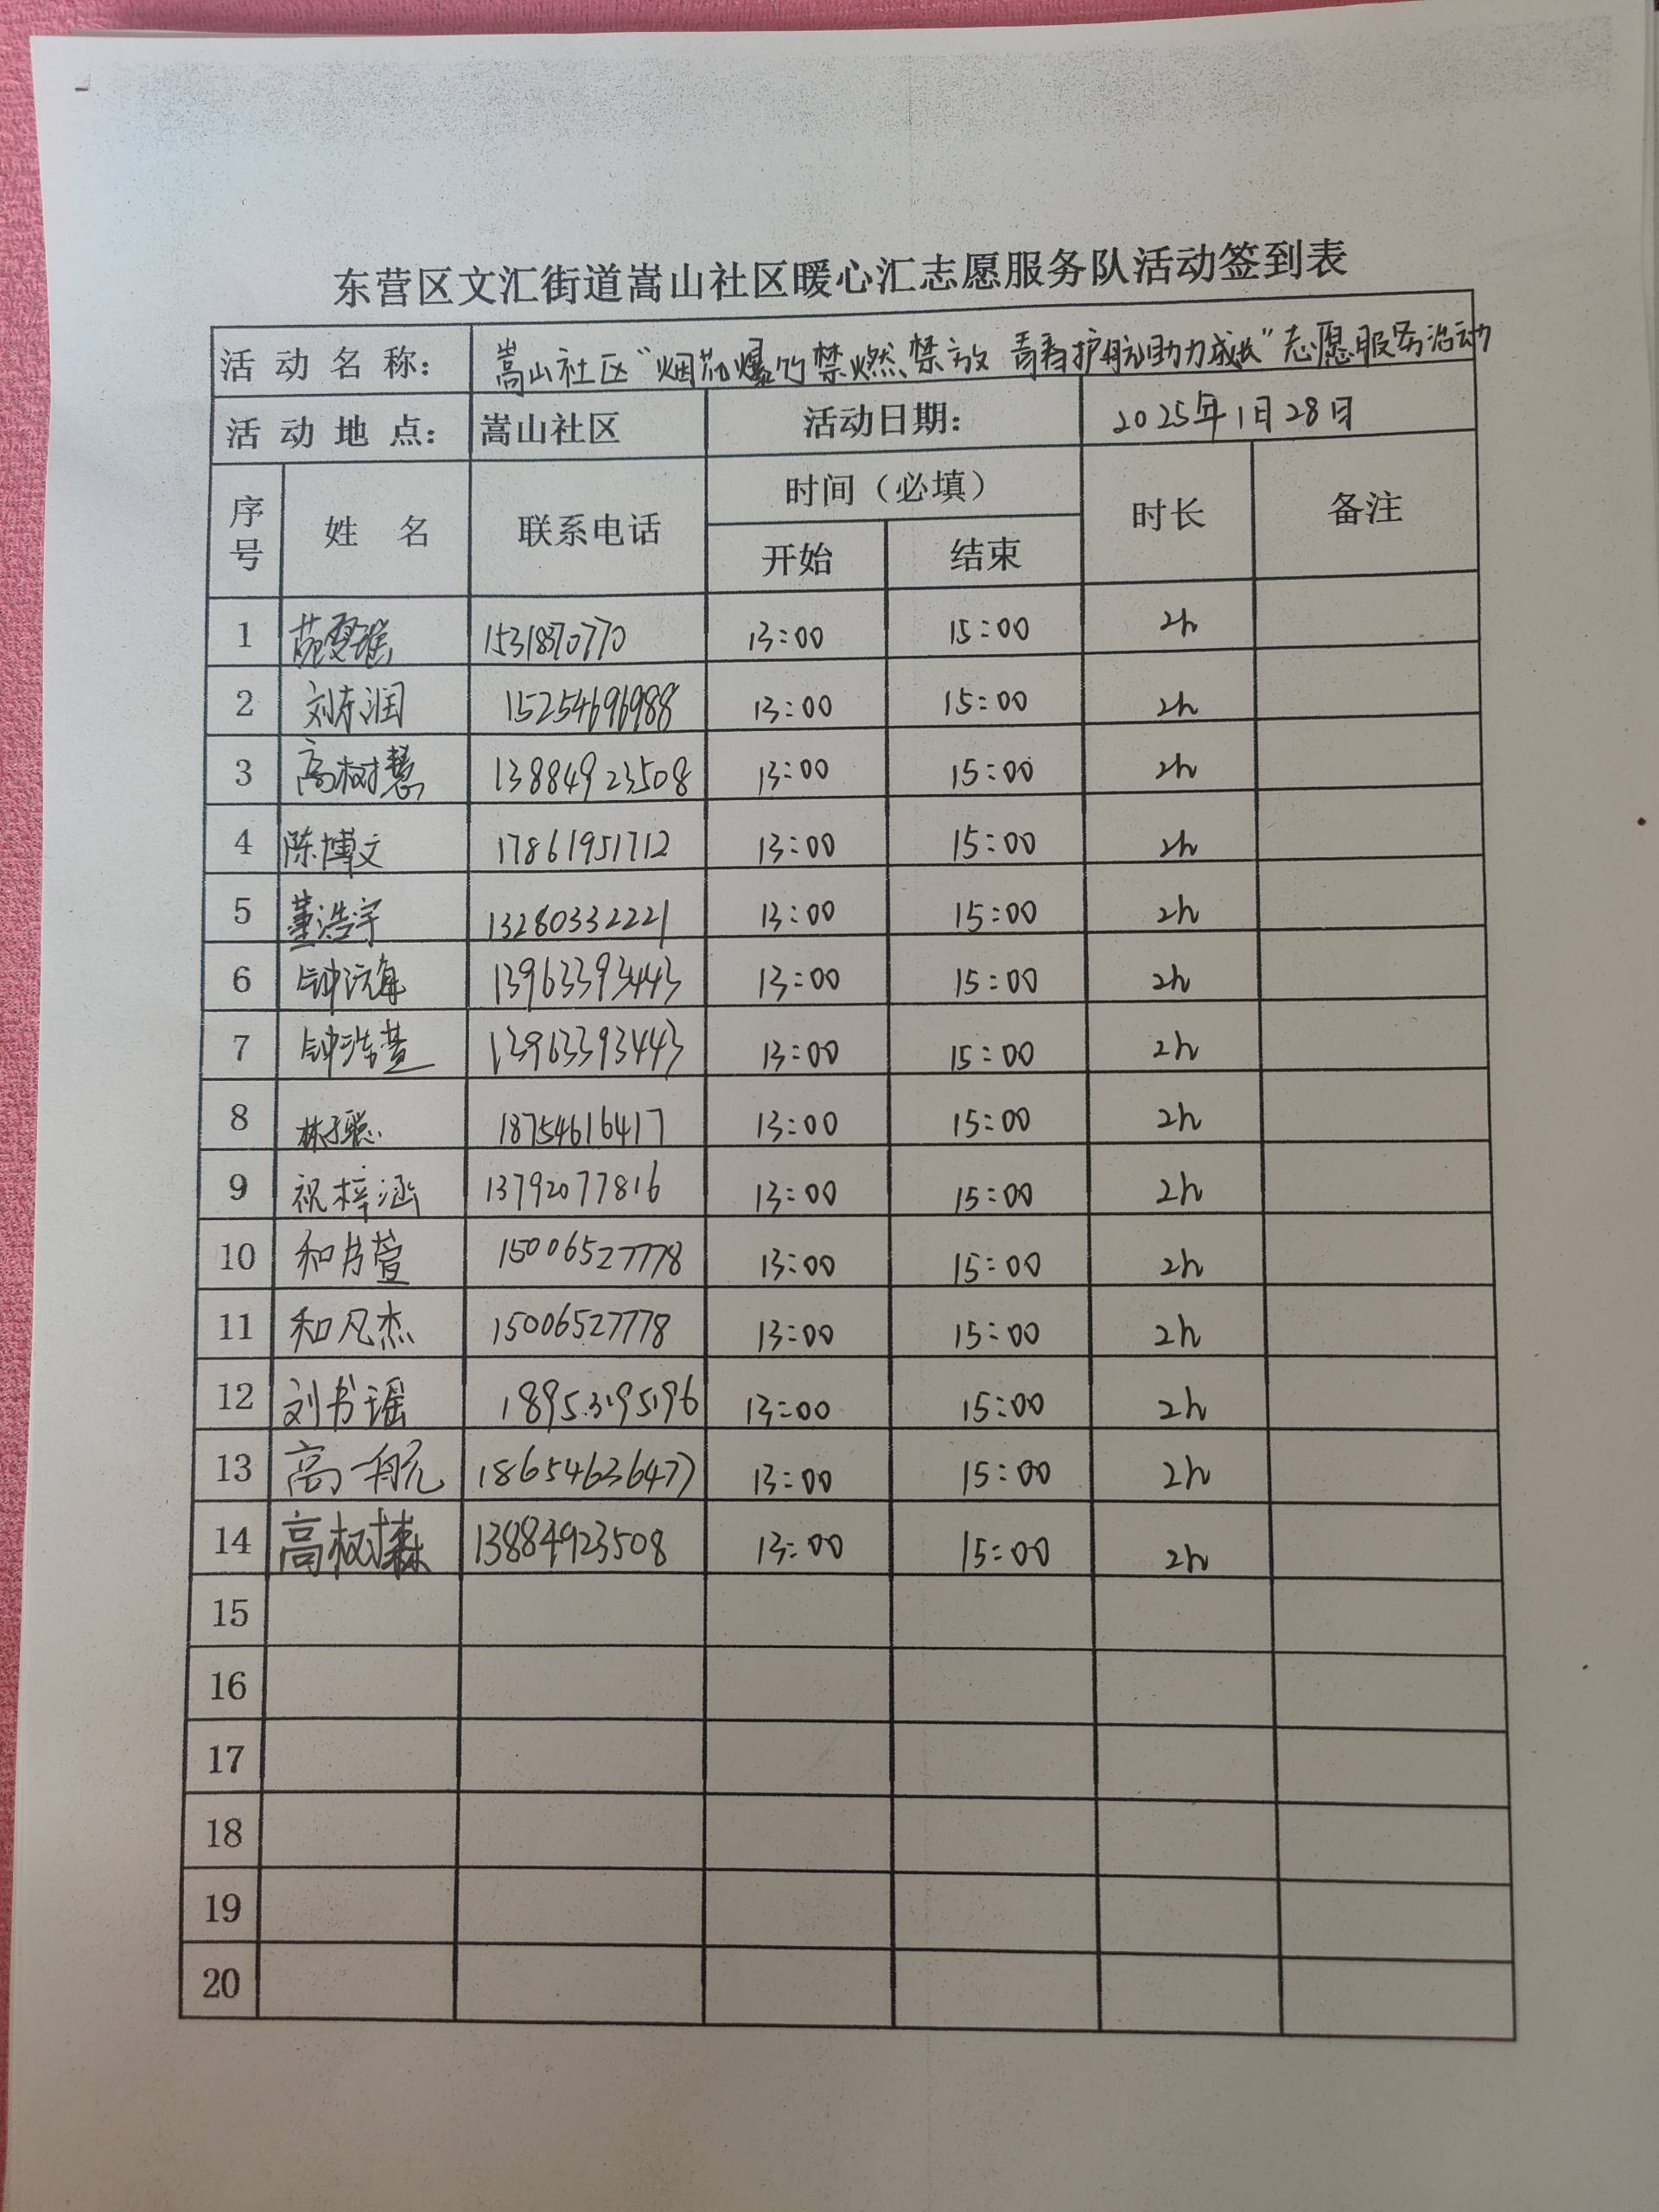 东营区文汇街道嵩山社区暖心汇志愿服务队活动签到表
活动名称： 嵩山社区“烟花爆竹禁燃禁放 青春护航助力成长”志愿服务活动
活动地点： 嵩山社区 活动日期： 2025年1月28日
序号 姓 名 联系电话 时间（必填） 时长 备注
开始 结束
1 1531870770 13:00 15:00 2h
2 刘东润 15254696988 13:00 15:00 2h
3 高树慧 13884923508 13:00 15:00 2h
4 陈博文 17861951712 13:00 15:00 2h
5 董浩宇 13280332221 13:00 15:00 2h
6 13963393443 13:00 15:00 2h
7 13963393443 13:00 15:00 2h
8 林子聪 18754616417 13:00 15:00 2h
9 祝梓涵 13792077816 13:00 15:00 2h
10 和书萱 15006527778 13:00 15:00 2h
11 和凡杰 15006527778 13:00 15:00 2h
12 刘书瑶 18953195196 13:00 15:00 2h
13 高一航 18654636477 13:00 15:00 2h
14 高树森 13884923508 13:00 15:00 2h
15
16
17
18
19
20